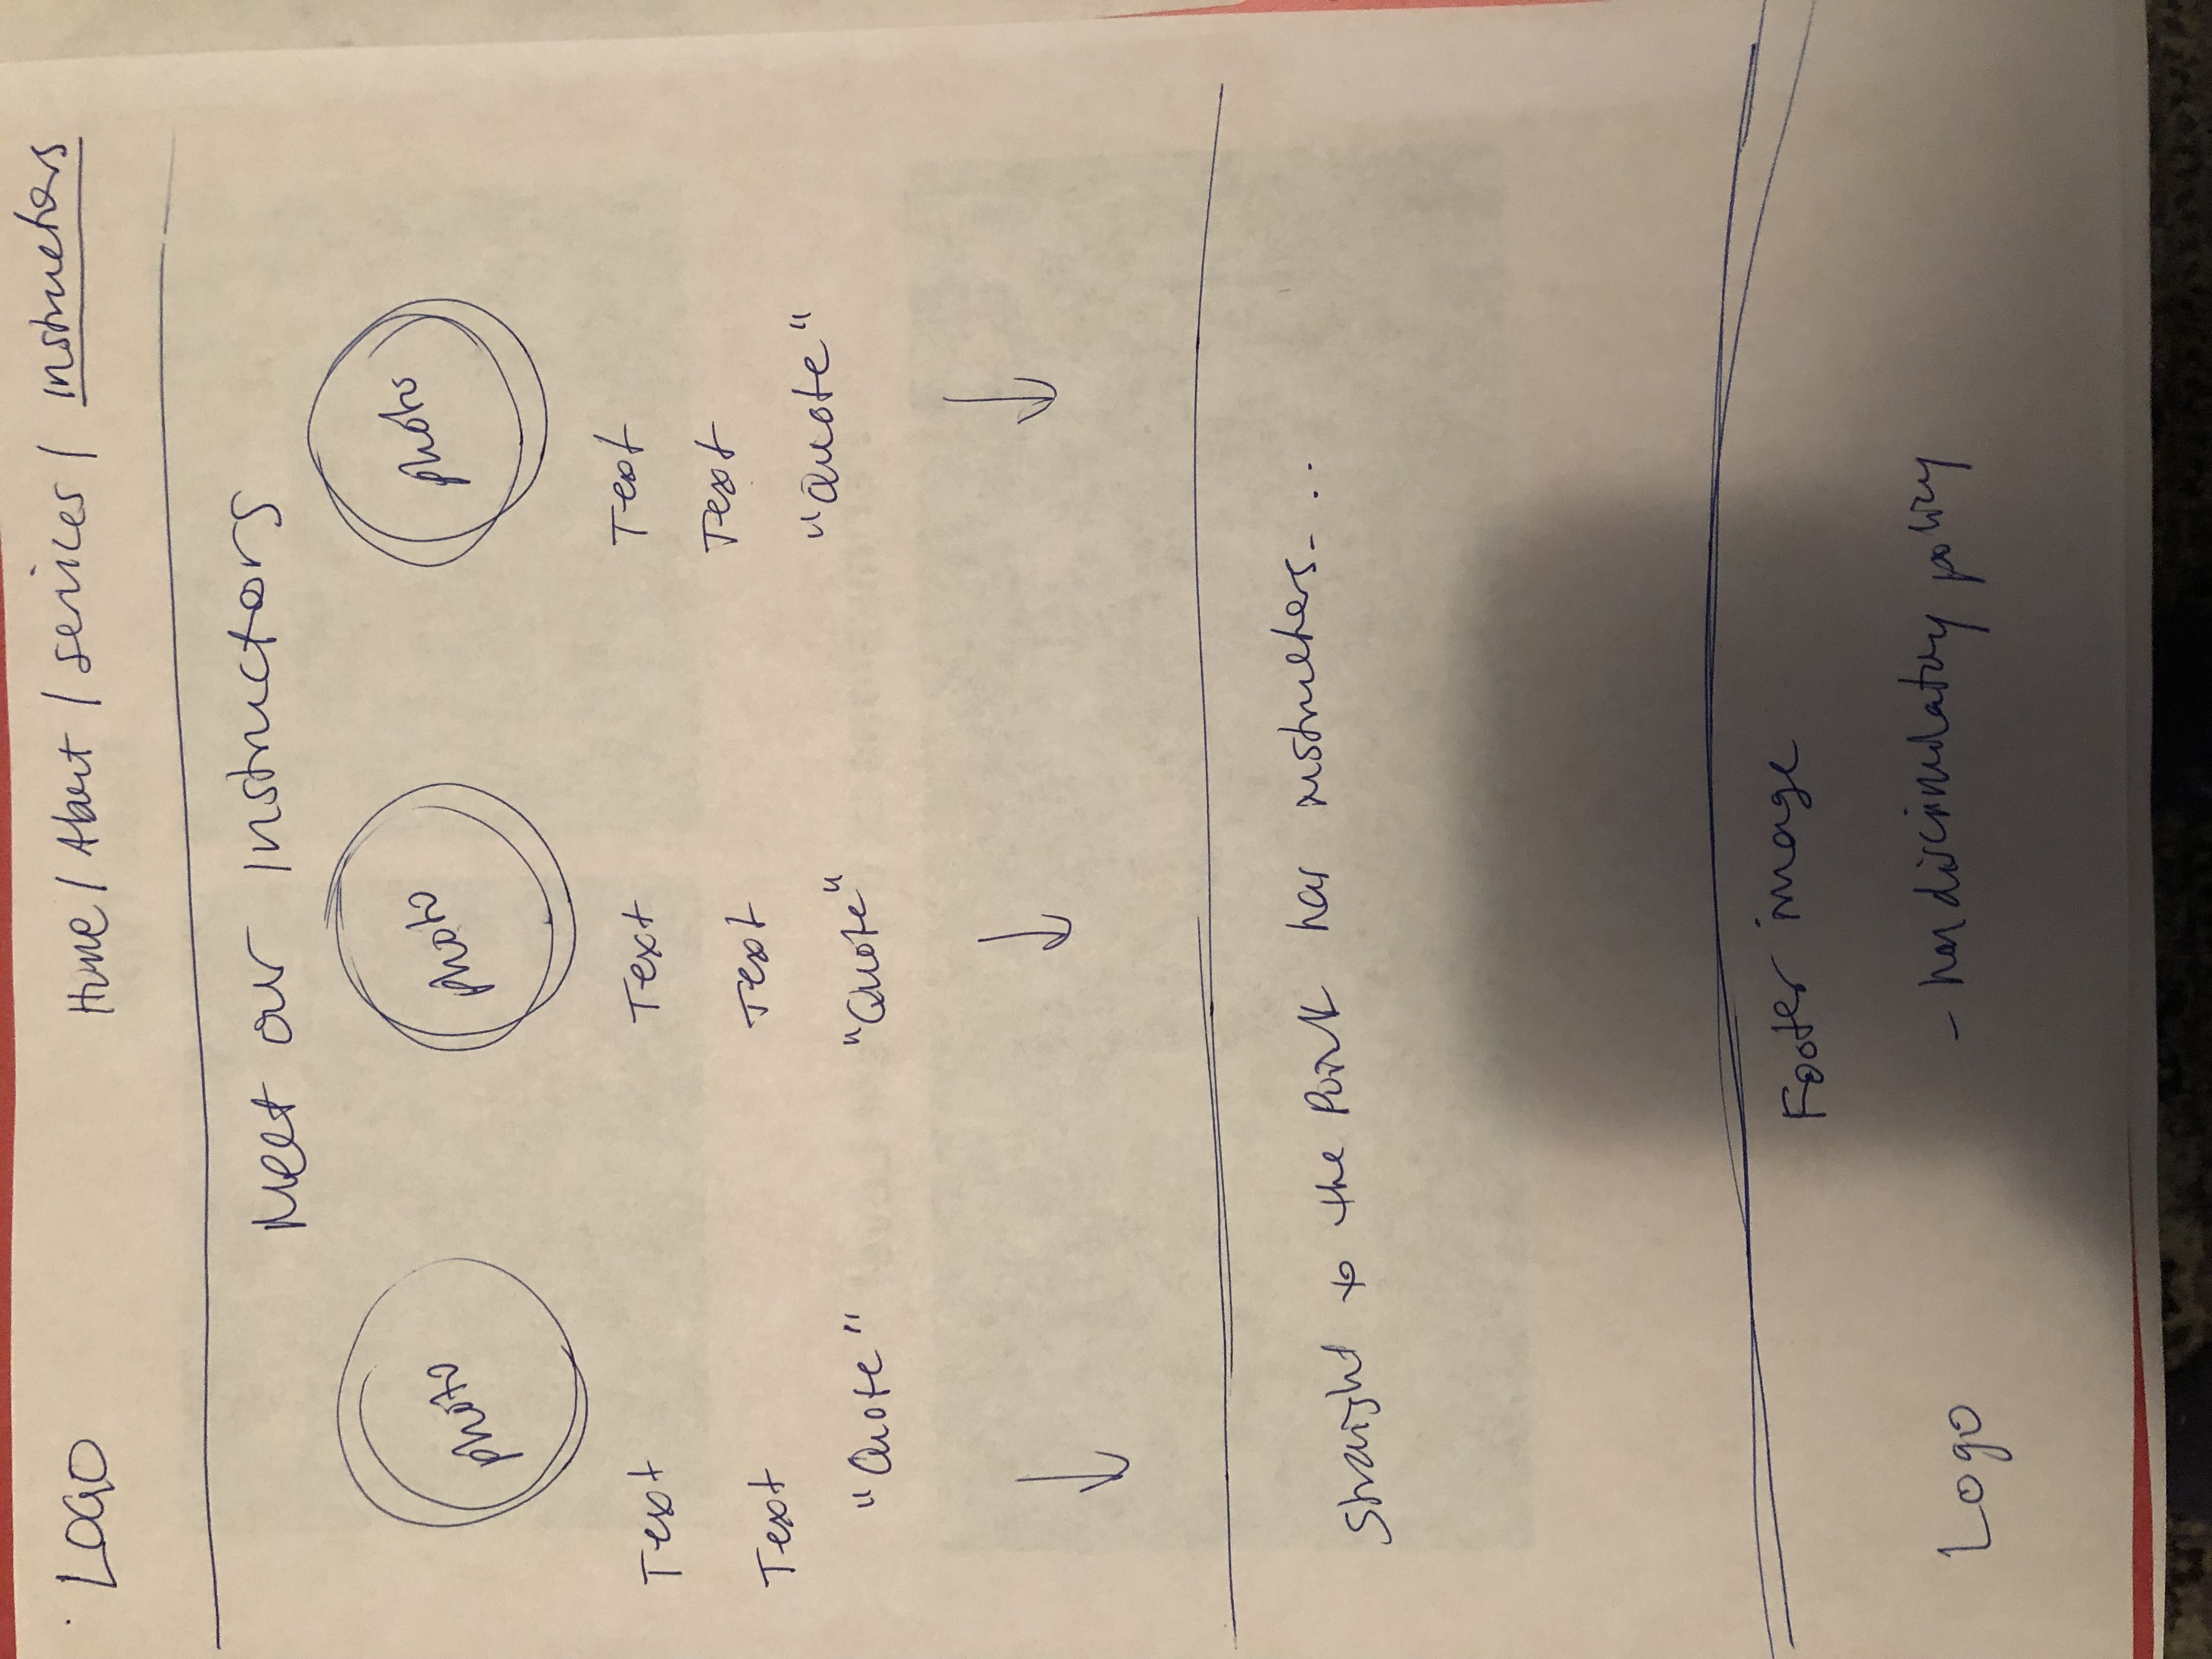 LOGO Home / About / Services / Instructors
Meet our Instructors
photo photo photo
Text Text Text
Text Text Text
"Quote" "Quote" "Quote"
Straight to the Point has instructors ...
Footer image
Logo - nondiscriminatory policy